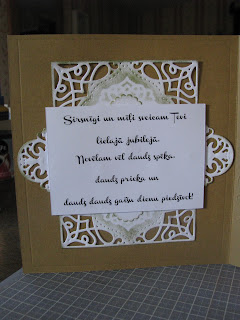 Sirsnīgi un mīļi sveicam Tevi
lielajā jubilejā.
Novēlam vēl daudz spēka,
daudz prieka un
daudz daudz gaišu dienu piedzīvot!